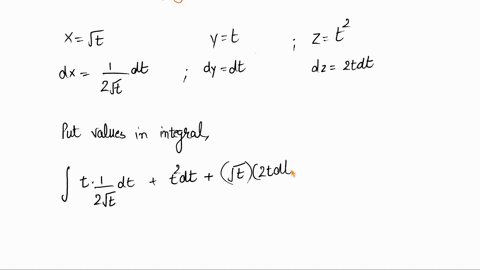 x = √t y = t ; z = t²
dx = 1/(2√t) dt ; dy = dt dz = 2tdt
Put values in integral,
∫ t · 1/(2√t) dt + t² dt + (√t)(2tdt